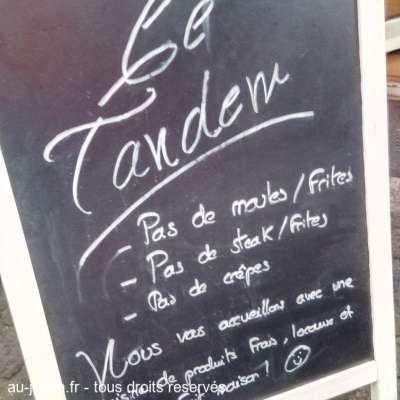 Le
Tandem
- Pas de moules/frites
- Pas de steak/frites
- Pas de crêpes
Nous vous accueillons avec une
de produits frais, locaux et
maison!
- tous droits reservés